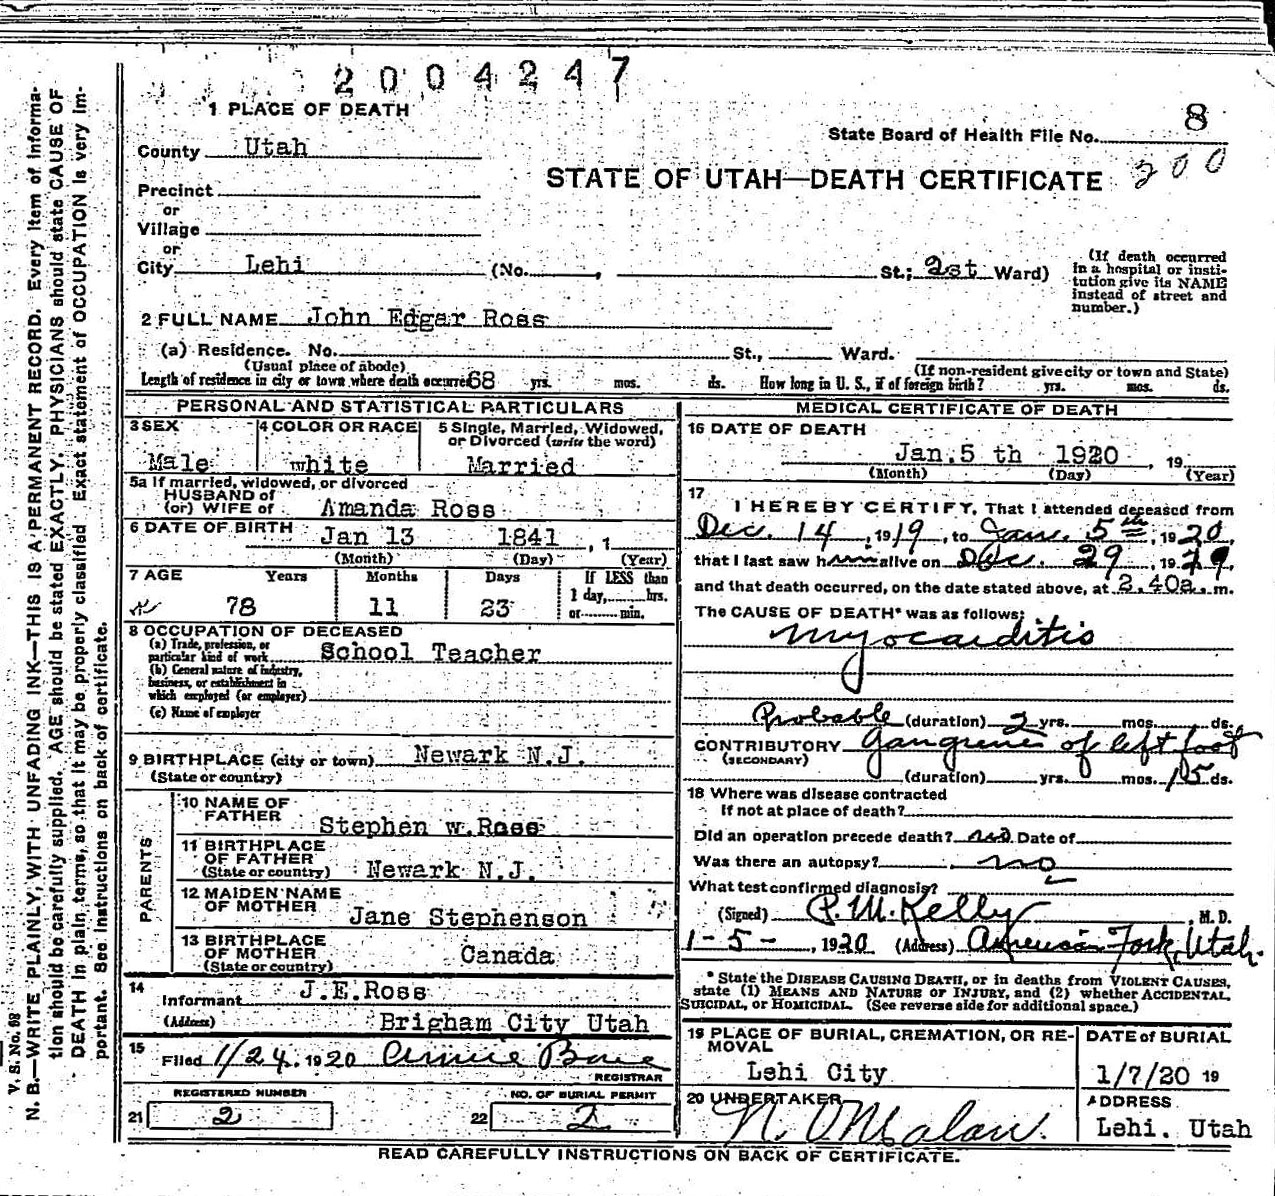 2004247
1 PLACE OF DEATH
State Board of Health File No. 8
County Utah
200
STATE OF UTAH—DEATH CERTIFICATE
Precinct
or
Village
or
City Lehi (No. , St.; 2st Ward)
(If death occurred
in a hospital or insti-
tution give its NAME
instead of street and
number.)
2 FULL NAME John Edgar Ross
(a) Residence. No. St., Ward.
(Usual place of abode) (If non-resident give city or town and State)
Length of residence in city or town where death occurred 68 yrs. mos. ds. How long in U. S., if of foreign birth? yrs. mos. ds.
PERSONAL AND STATISTICAL PARTICULARS
3 SEX 4 COLOR OR RACE 5 Single, Married, Widowed,
or Divorced (write the word)
Male white Married
5a If married, widowed, or divorced
HUSBAND of
(or) WIFE of Amanda Ross
6 DATE OF BIRTH Jan 13 1841 , 1
(Month) (Day) (Year)
7 AGE Years Months Days If LESS than
1 day, hrs.
or min.
78 11 23
8 OCCUPATION OF DECEASED
(a) Trade, profession, or
particular kind of work School Teacher
(b) General nature of industry,
business, or establishment in
which employed (or employer)
(c) Name of employer
9 BIRTHPLACE (city or town) Newark N.J.
(State or country)
PARENTS
10 NAME OF
FATHER Stephen w.Ross
11 BIRTHPLACE
OF FATHER
(State or country) Newark N.J.
12 MAIDEN NAME
OF MOTHER Jane Stephenson
13 BIRTHPLACE
OF MOTHER
(State or country) Canada
14
Informant J.E.Ross
(Address) Brigham City Utah
15
Filed 1/24, 1920 Annie Bone
REGISTRAR
REGISTERED NUMBER NO. OF BURIAL PERMIT
21 2 22 2
MEDICAL CERTIFICATE OF DEATH
16 DATE OF DEATH
Jan.5 th 1920 , 19
(Month) (Day) (Year)
17
I HEREBY CERTIFY, That I attended deceased from
Dec. 14, 1919, to Jan. 5th, 1920,
that I last saw him alive on Dec. 29, 1919,
and that death occurred, on the date stated above, at 2.40a.m.
The CAUSE OF DEATH* was as follows:
Myocarditis
Probable (duration) 2 yrs. mos. ds.
CONTRIBUTORY Gangrene of left foot
(SECONDARY)
(duration) yrs. mos. 15 ds.
18 Where was disease contracted
If not at place of death?
Did an operation precede death? no Date of
Was there an autopsy? no
What test confirmed diagnosis?
(Signed) P.M.Kelly , M. D.
1-5-, 1920 (Address) American Fork, Utah.
* State the DISEASE CAUSING DEATH, or in deaths from VIOLENT CAUSES,
state (1) MEANS AND NATURE OF INJURY, and (2) whether ACCIDENTAL,
SUICIDAL, or HOMICIDAL. (See reverse side for additional space.)
19 PLACE OF BURIAL, CREMATION, OR RE-
MOVAL
Lehi City
DATE of BURIAL
1/7/20 19
20 UNDERTAKER
N. O. Malan.
ADDRESS
Lehi. Utah
READ CAREFULLY INSTRUCTIONS ON BACK OF CERTIFICATE.
V. S. No. 98
N. B.—WRITE PLAINLY, WITH UNFADING INK—THIS IS A PERMANENT RECORD. Every item of informa-
tion should be carefully supplied. AGE should be stated EXACTLY. PHYSICIANS should state CAUSE OF
DEATH in plain terms, so that it may be properly classified. Exact statement of OCCUPATION is very im-
portant. See instructions on back of certificate.